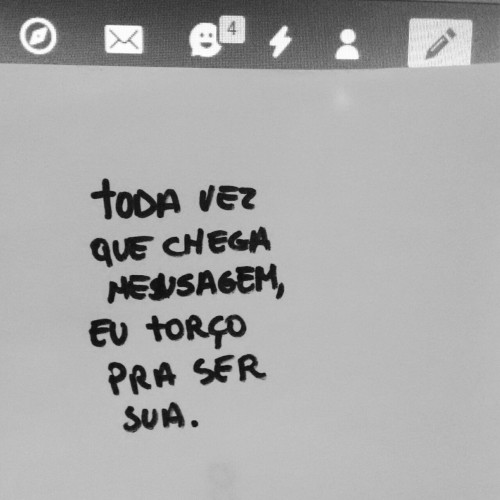 4
TODA VEZ
QUE CHEGA
MENSAGEM,
EU TORÇO
PRA SER
SUA.